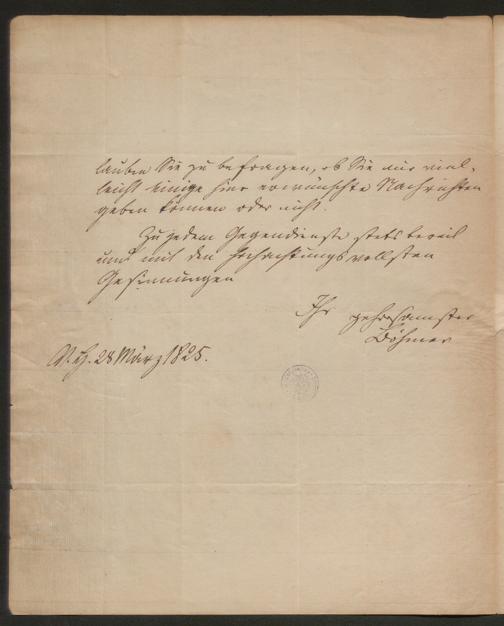 lauben Sie zu befragen, ob Sie mir viel-
leicht einige hier erwünschte Nachrichten
geben können oder nicht.
Zu jedem Gegendienste stets bereit
und mit den hochachtungsvollsten
Gesinnungen
Ihr gehorsamster
Böhmer
28 März 1825.